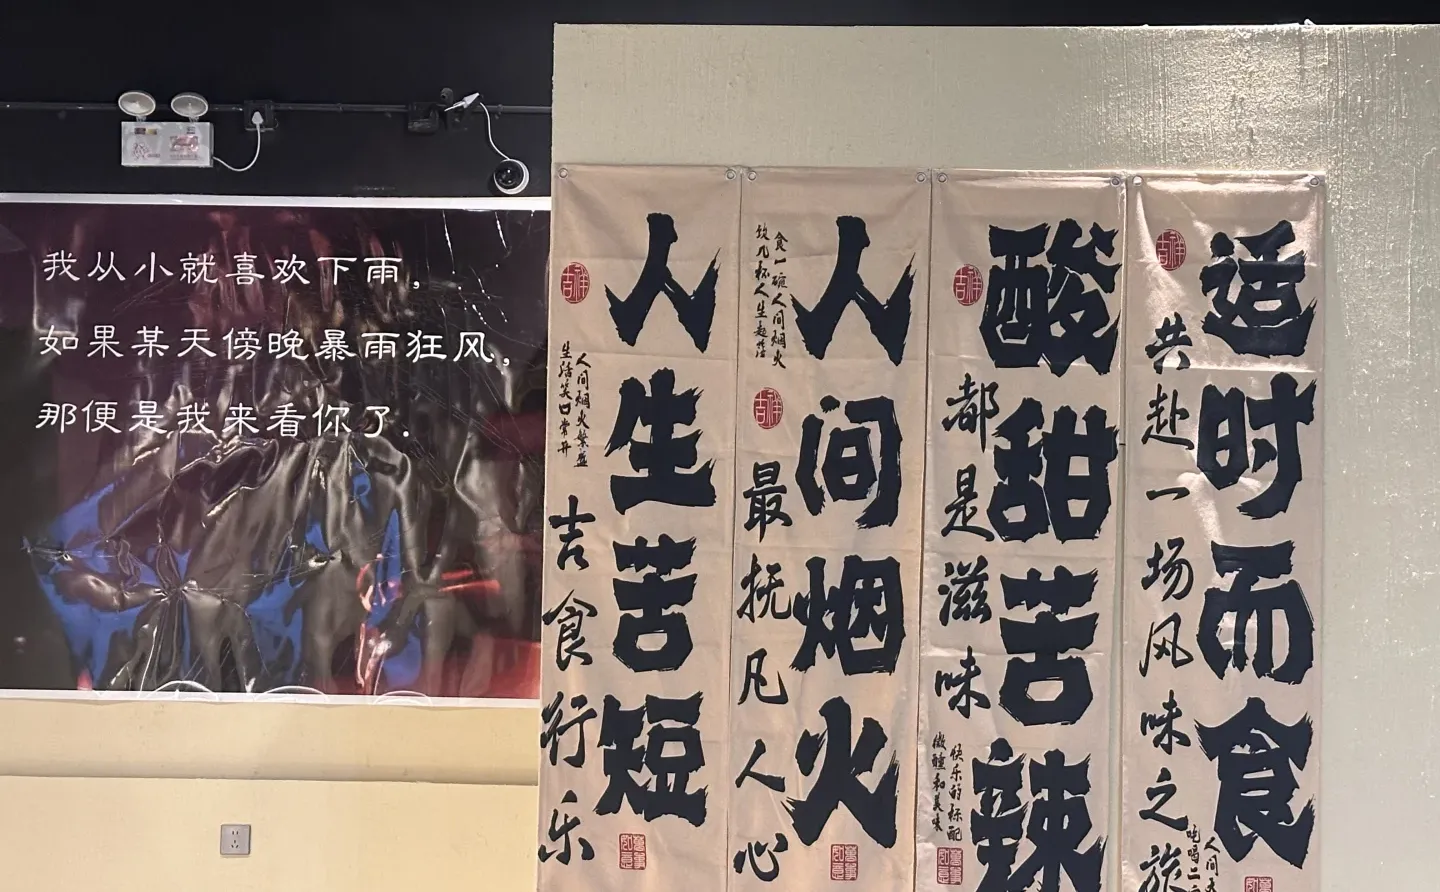 我从小就喜欢下雨，
如果某天傍晚暴雨狂风，
那便是我来看你了.
人生苦短
吉祥
人间烟火繁盛
生活笑口常开
吉食行乐
万事如意
人间烟火
食一碗人间烟火
饮几杯人生起落
吉祥
最抚凡人心
万事如意
酸甜苦辣
吉祥
都是滋味
快乐的标配
微醺和美味
万事如意
适时而食
吉祥
共赴一场风味之旅